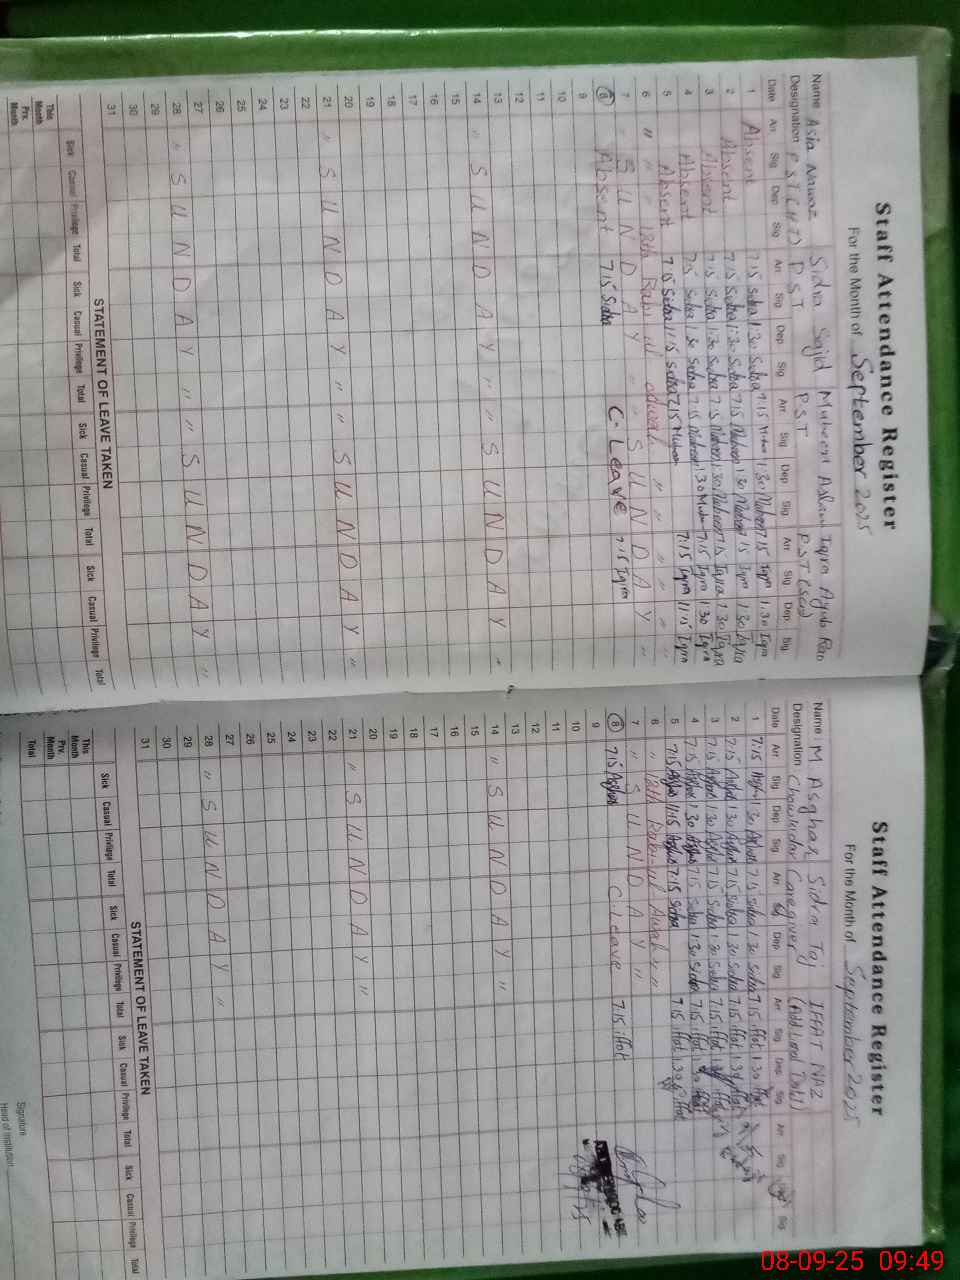 Staff Attendance Register
For the Month of September 2025
Name Asia Nawaz Sidra Sajid Mubeen Aslam Iqra Ayub Rao
Designation PST (H.T) PST PST PST
Date Arr Sig Dep Sig Arr Sig Dep Sig Arr Sig Dep Sig Arr Sig Dep Sig
1 Absent 7:15 Sidra 1:30 Sidra 7:15 1:30 Mubeen 7:15 Iqra 1:30 Iqra
2 Absent 7:15 Sidra 1:30 Sidra 7:15 Mubeen 1:30 Mubeen 7:15 Iqra 1:30 Iqra
3 Absent 7:15 Sidra 1:30 Sidra 7:15 Mubeen 1:30 Mubeen 7:15 Iqra 1:30 Iqra
4 Absent 7:15 Sidra 1:30 Sidra 7:15 Mubeen 1:30 7:15 Iqra 1:30 Iqra
5 Absent 7:15 Sidra 11:15 Sidra 7:15 Mubeen 7:15 Iqra 11:15 Iqra
6 " " " 12th Rabi ul " " " " "
7 " SUNDAY " " SUNDAY "
8 Absent 7:15 Sidra C. Leave 7:15 Iqra
9
10
11
12
13
14 " SUNDAY " " SUNDAY "
15
16
17
18
19
20
21 " SUNDAY " " SUNDAY "
22
23
24
25
26
27
28 " SUNDAY " " SUNDAY "
29
30
31
STATEMENT OF LEAVE TAKEN
Sick Casual Privilege Total Sick Casual Privilege Total Sick Casual Privilege Total Sick Casual Privilege Total
This Month
Prv. Month
Staff Attendance Register
For the Month of September 2025
Name : M Asghar Sidra Taj IFFAT NAZ
Designation : Chowkidar Caregiver
Date Arr Sig Dep Sig Arr Dep Sig Arr Sig Dep Sig Arr Sig Sig
1 7:15 1:30 7:15 Sidra 1:30 Sidra 7:15 iffat 1:30
2 7:15 Asghar 1:30 Asghar 7:15 Sidra 1:30 Sidra 7:15 iffat 1:30 iffat
3 7:15 Asghar 1:30 Asghar 7:15 Sidra 1:30 Sidra 7:15 iffat
4 7:15 Asghar 1:30 Asghar 7:15 Sidra 1:30 Sidra 7:15 iffat 1:30 iffat
5 7:15 Asghar 11:15 Asghar 7:15 Sidra 7:15 iffat 1:30 iffat
6 " 12th Rabi-ul Awal " "
7 " SUNDAY "
8 7:15 Asghar C. Leave 7:15 iffat
9
10
11
12
13
14 " SUNDAY "
15
16
17
18
19
20
21 " SUNDAY "
22
23
24
25
26
27
28 " SUNDAY "
29
30
31
STATEMENT OF LEAVE TAKEN
Sick Casual Privilege Total Sick Casual Privilege Total Sick Casual Privilege Total Sick Casual Privilege Total
This Month
Prv. Month
Total
Signature
Head of Institution
08-09-25 09:49